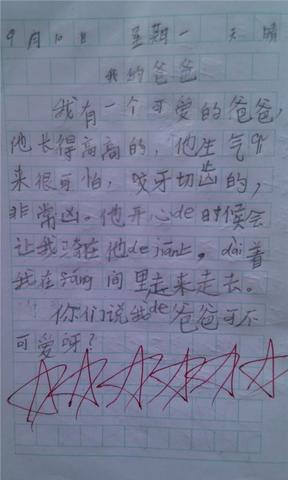 9月10日 星期一 天晴
我的爸爸
我有一个可爱的爸爸,
他长得高高的,他生气
来很可怕,咬牙切齿的,
非常凶。他开心de时候会
让我骑在他de jian上,dai着
我在 间里走来走去。
你们说我de爸爸可不
可爱呀?